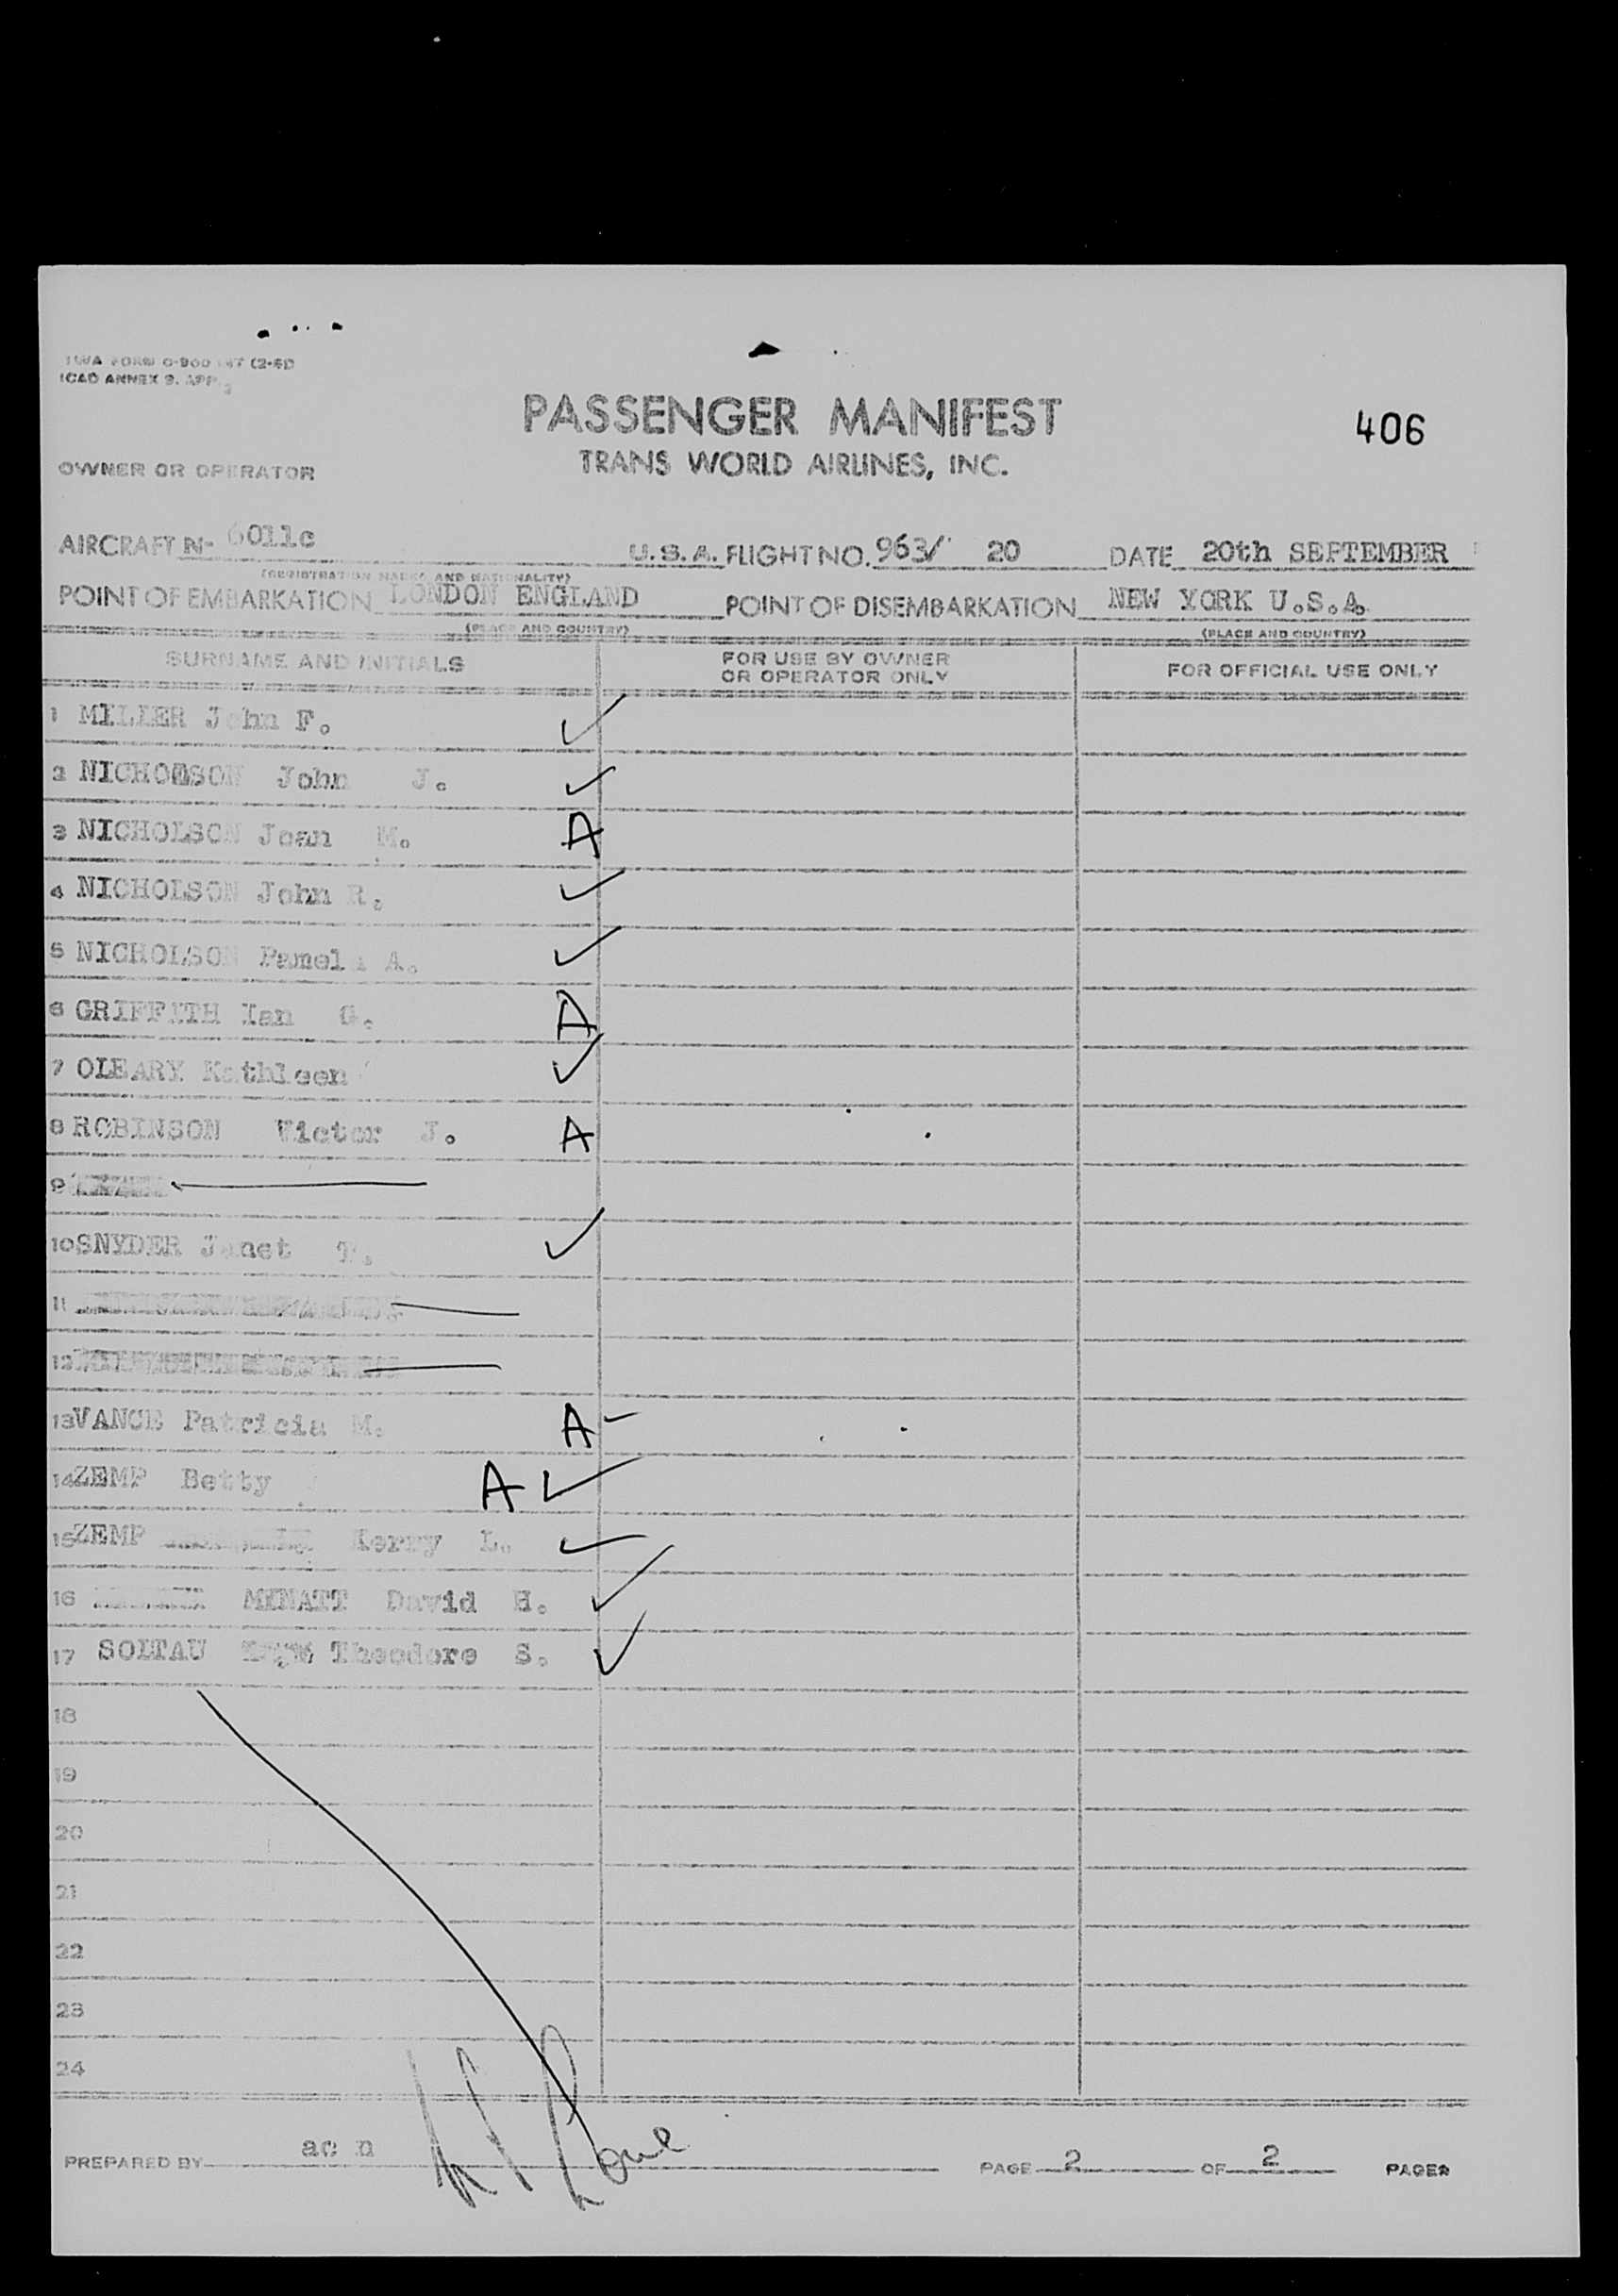 TWA FORM O-900 (2-51)
ICAO ANNEX 9. APP. 2
PASSENGER MANIFEST
406
TRANS WORLD AIRLINES, INC.
OWNER OR OPERATOR
AIRCRAFT N- 6011c U.S.A. FLIGHT NO. 963/ 20 DATE 20th SEPTEMBER
(REGISTRATION MARKS AND NATIONALITY)
POINT OF EMBARKATION LONDON ENGLAND POINT OF DISEMBARKATION NEW YORK U.S.A.
(PLACE AND COUNTRY) (PLACE AND COUNTRY)
SURNAME AND INITIALS FOR USE BY OWNER OR OPERATOR ONLY FOR OFFICIAL USE ONLY
1 MILLER John F. ✓
2 NICHOLSON John J. ✓
3 NICHOLSON Joan M. A
4 NICHOLSON John R. ✓
5 NICHOLSON Pamela A. ✓
6 GRIFFITH Ian G. A
7 OLEARY Kathleen ✓
8 ROBINSON Victor J. A
9
10 SNYDER Janet T. ✓
11
12
13 VANCE Patricia M. A -
14 ZEMP Betty A ✓
15 ZEMP Kerry L. ✓
16 MENATT David H. ✓
17 SOLTAU Theodore S. ✓
18
19
20
21
22
23
24
PREPARED BY ac n PAGE 2 OF 2 PAGES